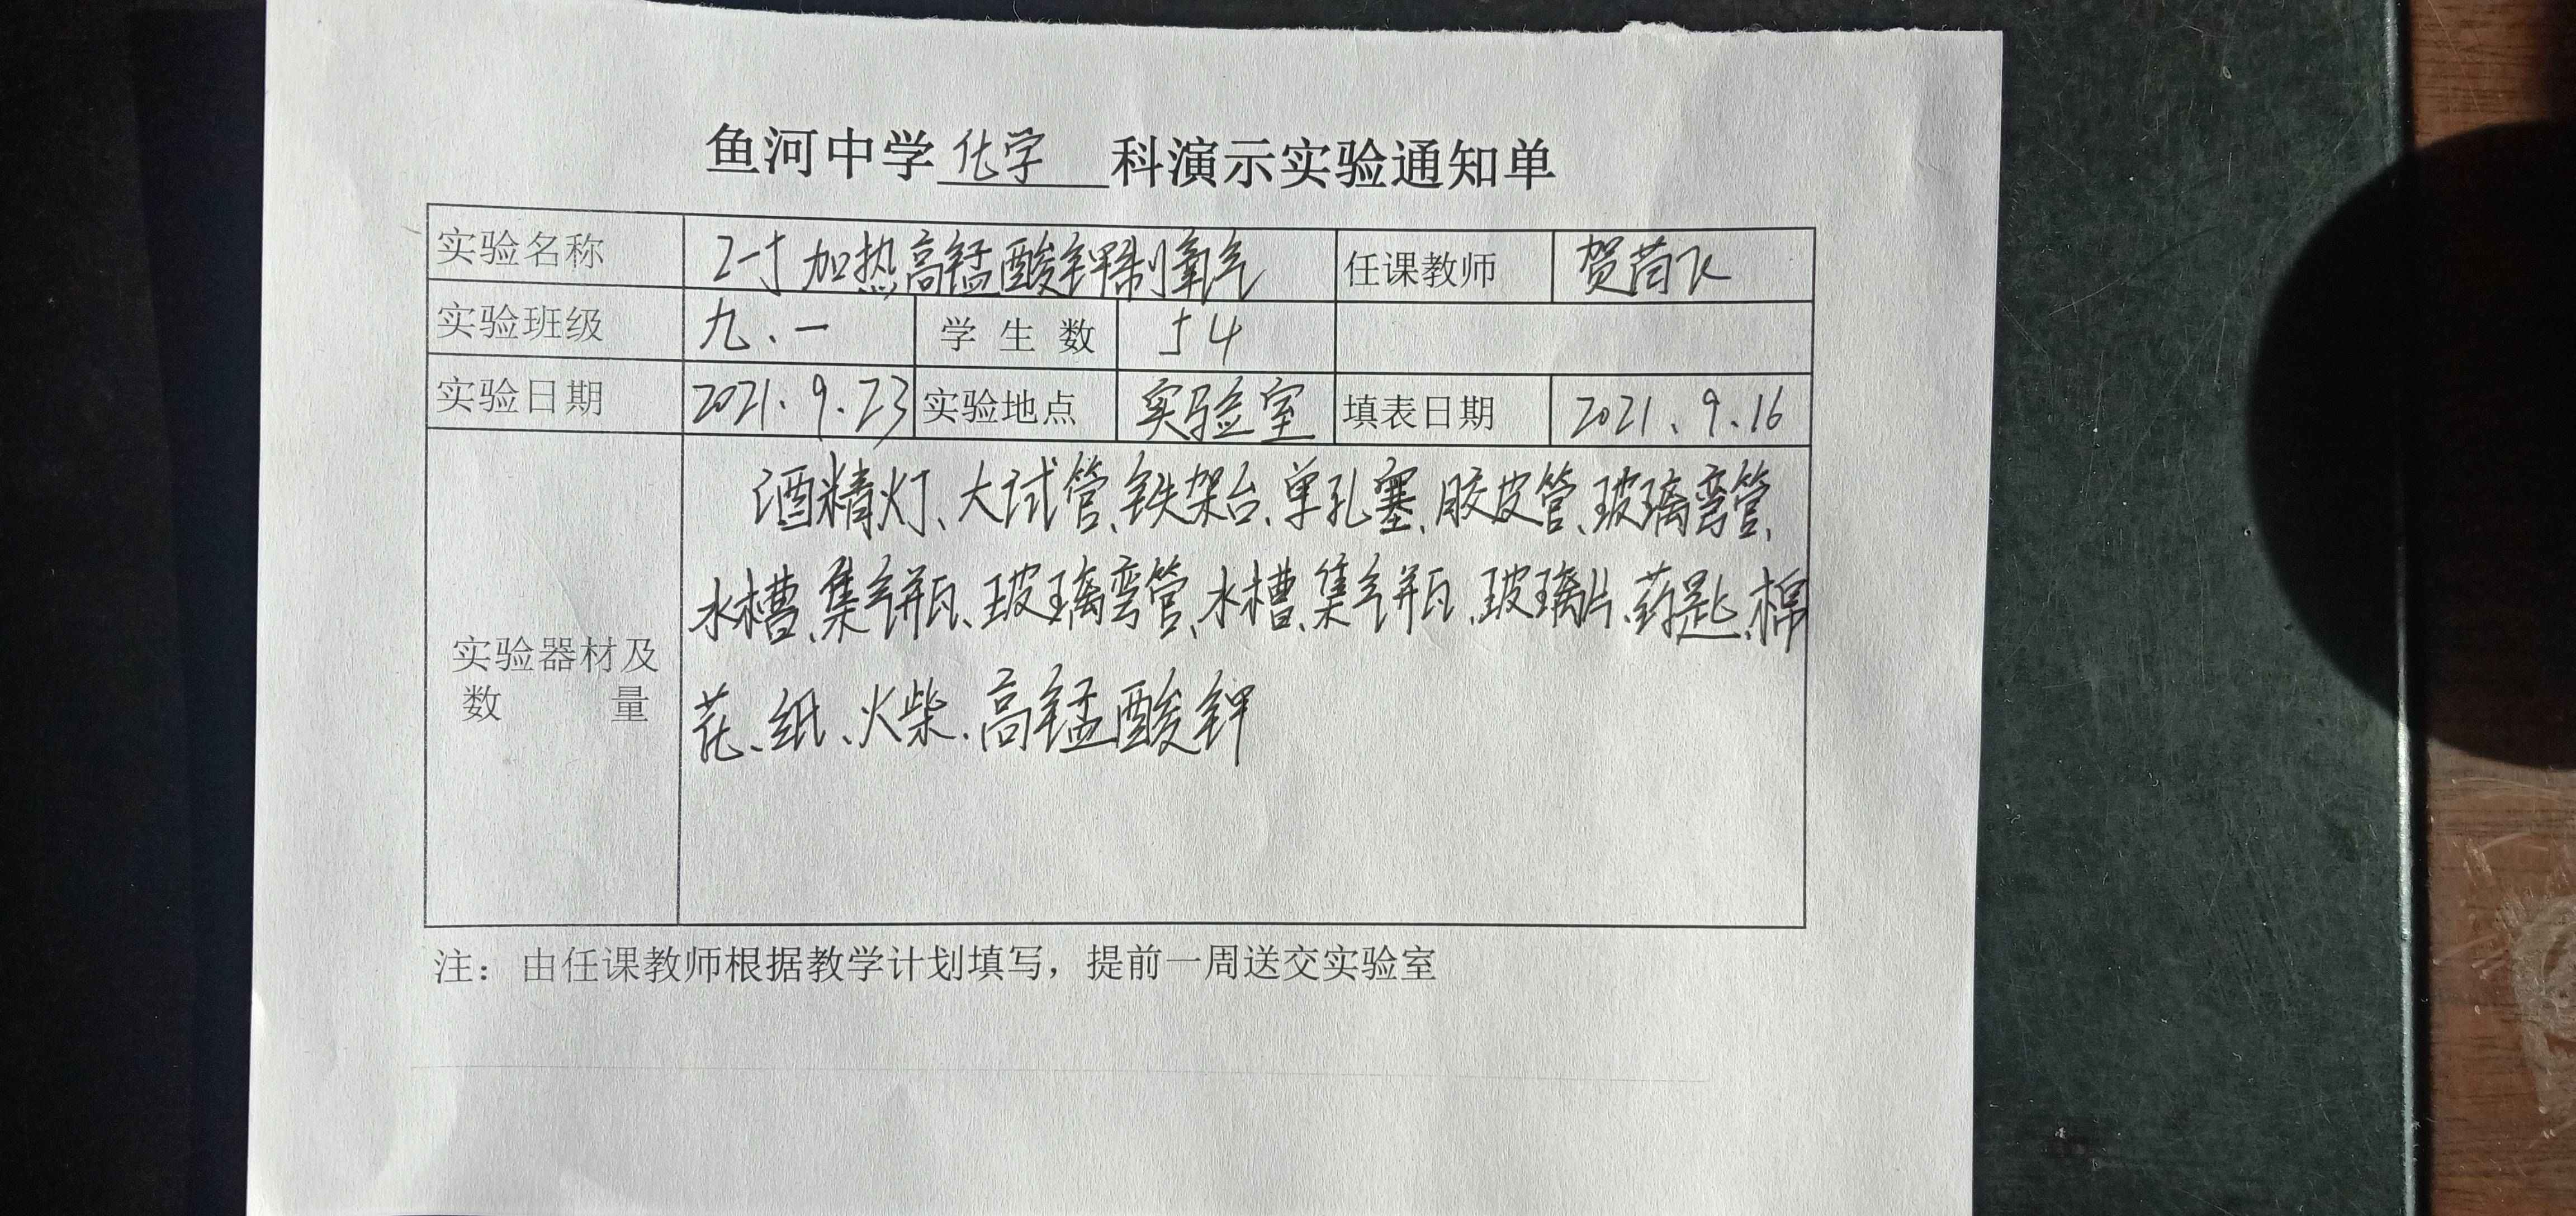 鱼河中学 化学 科演示实验通知单
实验名称 2-5 加热高锰酸钾制氧气 任课教师 贺
实验班级 九、一 学生数 54
实验日期 2021.9.23 实验地点 实验室 填表日期 2021.9.16
酒精灯、大试管、铁架台、单孔塞、胶皮管、玻璃弯管、
水槽、集气瓶、玻璃弯管、水槽、集气瓶、玻璃片、药匙、棉
实验器材及
数量
花、纸、火柴、高锰酸钾
注：由任课教师根据教学计划填写，提前一周送交实验室